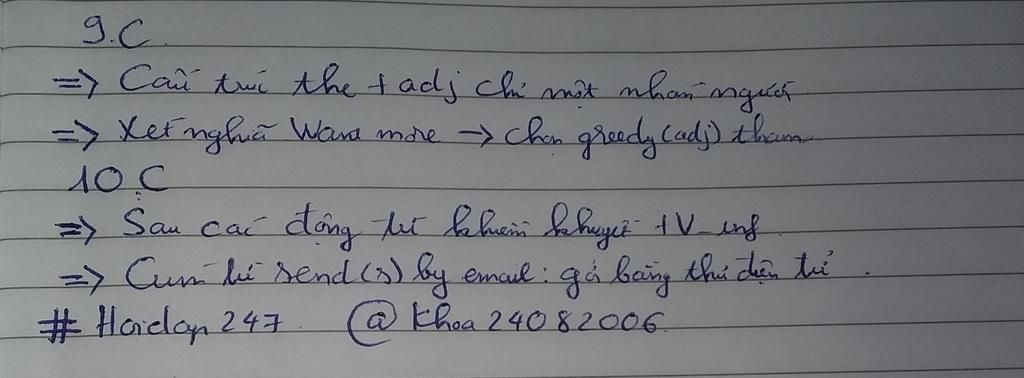 9.C
=> Cấu trúc the + adj chỉ một nhóm người
=> Xét nghĩa Want more -> chọn greedy (adj) tham
10.C
=> Sau các động từ khiếm khuyết + V_inf
=> Cụm từ send(s) by email: gửi bằng thư điện tử.
# Hoidap247 @khoa24082006